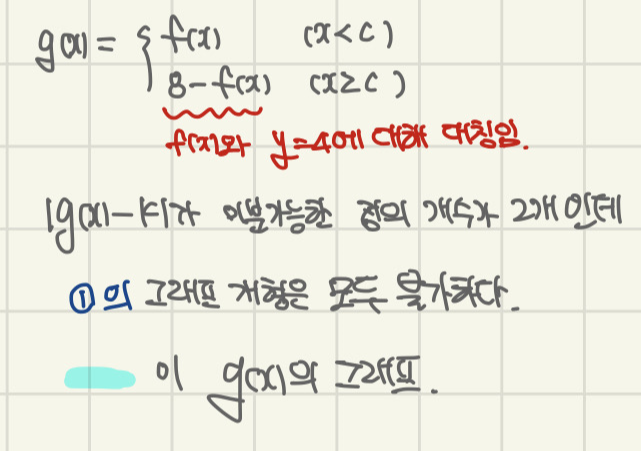 g(x) = { f(x) (x<c)
8-f(x) (x≥c)
f(x)와 y=4에 대해 대칭임.
|g(x)-k|가 미분가능한 점의 개수가 2개 인데
①의 그래프 개형은 모두 불가하다.
이 g(x)의 그래프.